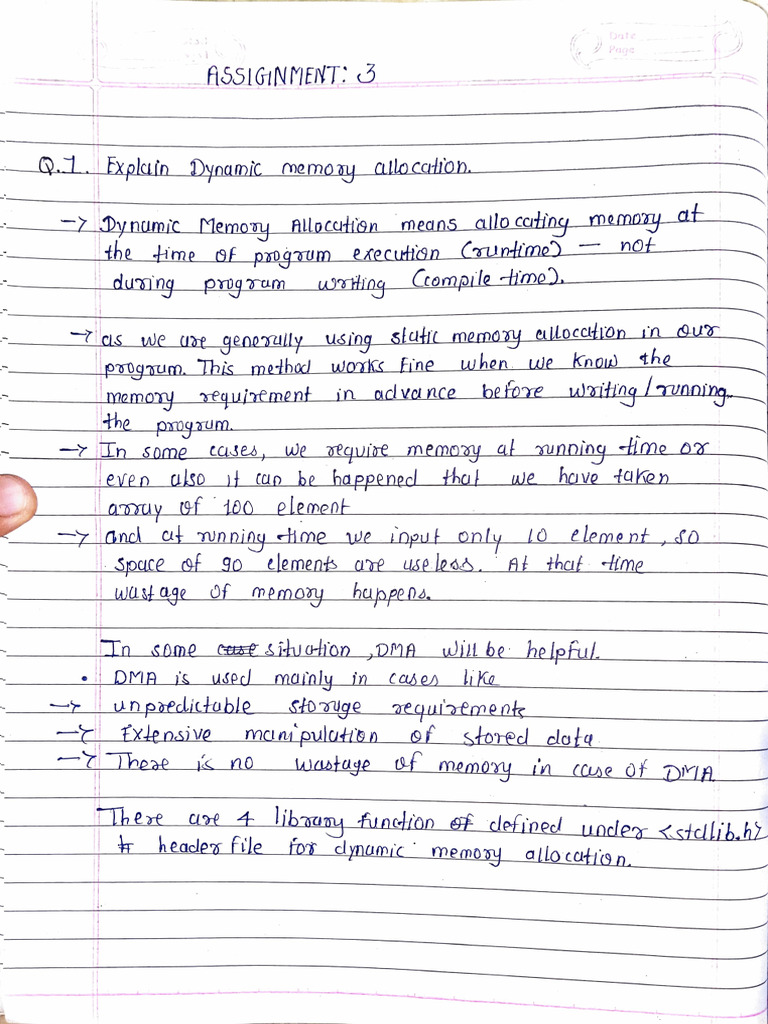 Date
Page
ASSIGINMENT: 3
Q.1. Explain Dynamic memory allocation.
-> Dynamic Memory Allocation means allocating memory at
the time of program execution (runtime) — not
during program writing (compile time).
-> as we are generally using static memory allocation in our
program. This method works fine when we know the
memory requirement in advance before writing/running
the program.
-> In some cases, we require memory at running time or
even also it can be happened that we have taken
array of 100 element
-> and at running time we input only 10 element, so
space of 90 elements are useless. At that time
wastage of memory happens.
In some case situation, DMA will be helpful.
• DMA is used mainly in cases like
-> unpredictable storage requirements
-> Extensive manipulation of stored data
-> There is no wastage of memory in case of DMA
There are 4 library function of defined under <stdlib.h>
header file for dynamic memory allocation.